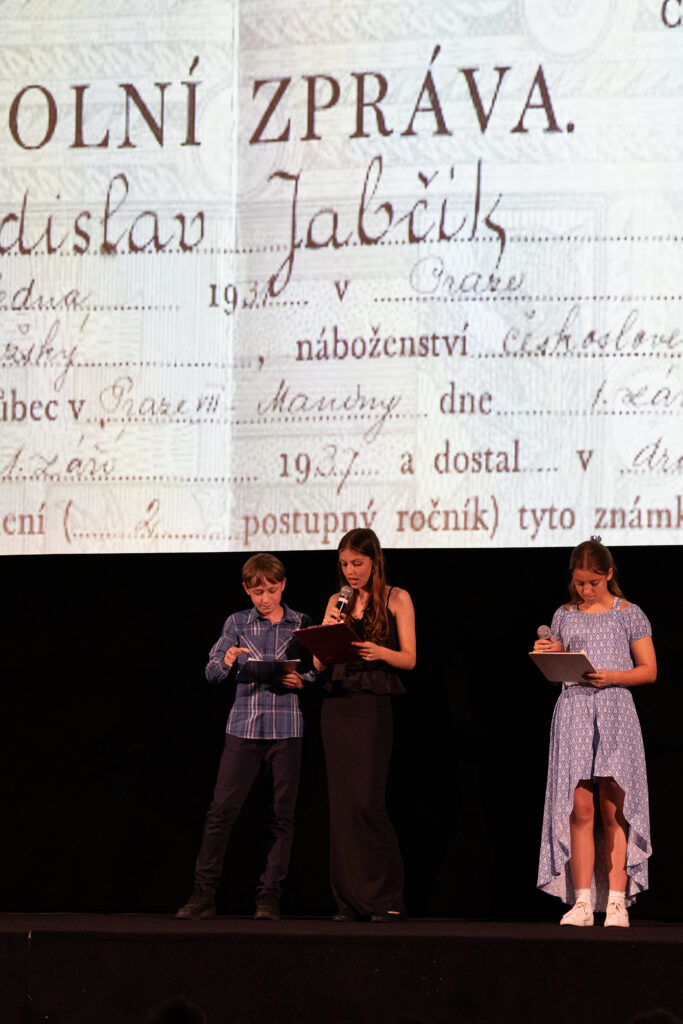 OLNÍ ZPRÁVA.
dislav Jabčík
1931 v Praze
, náboženství českoslove
ůbec v Praze VII - Maniny dne 1. zář
1. září 1937 a dostal v
ení ( 2 postupný ročník) tyto znám